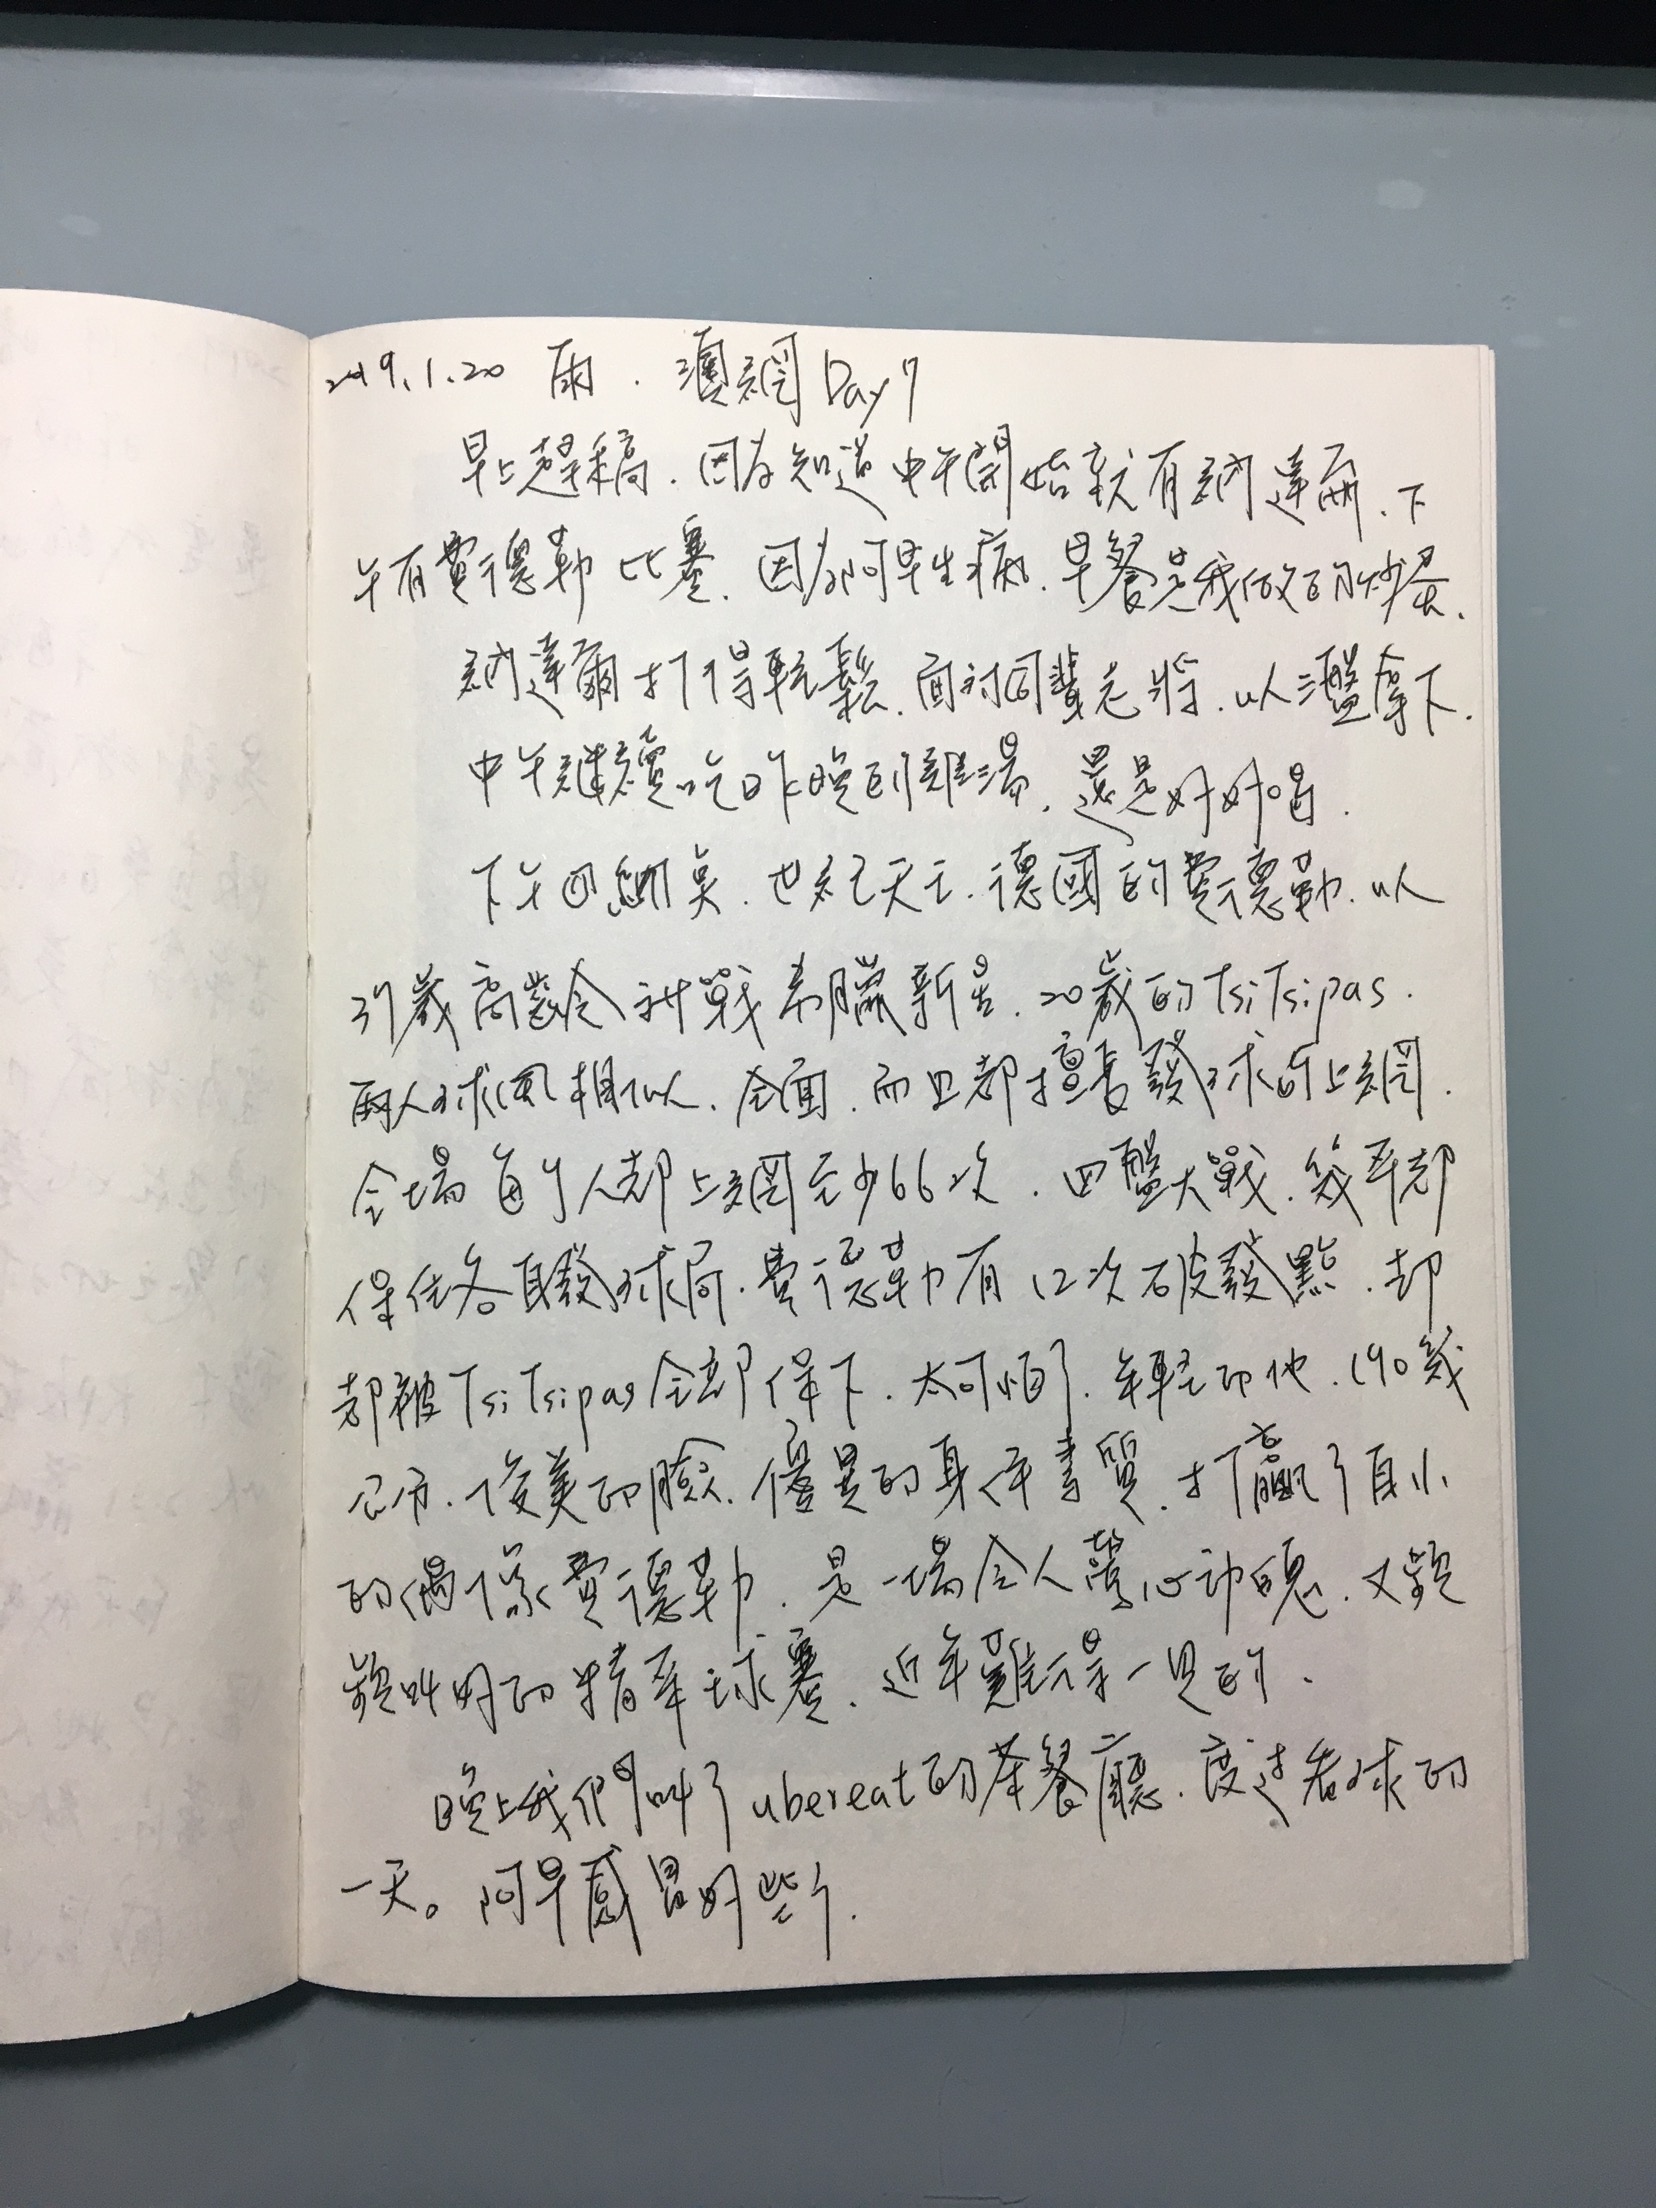 2019.1.20 雨. 澳網Day7
早上趕稿.因為知道中午開始就有納達爾.下
午有費德勒比賽.因為阿早生病.早餐是我做的炒蛋.
納達爾打得輕鬆.面對同輩老將.以三盤拿下.
中午繼續吃昨晚的雞湯.還是好好喝.
下午回網.世紀天王.德國的費德勒.以
37歲高齡對戰希臘新星.20歲的TsiTsipas.
兩人球風相似.全面.而且都擅長發球的上網.
全場每個人都上網至少66次.四盤大戰.幾乎都
保住各自發球局.費德勒有12次破發點.却
都被TsiTsipas全部保下.太可怕了.年輕的他.190幾
公分.俊美的臉.優異的身体素質.打贏了自小
的偶像費德勒.是一場令人驚心動魄.又頻
頻叫好的精采球賽.近年難得一見的.
晚上我們叫了ubereat的茶餐廳.度過看球的
一天。阿早感冒好些了.